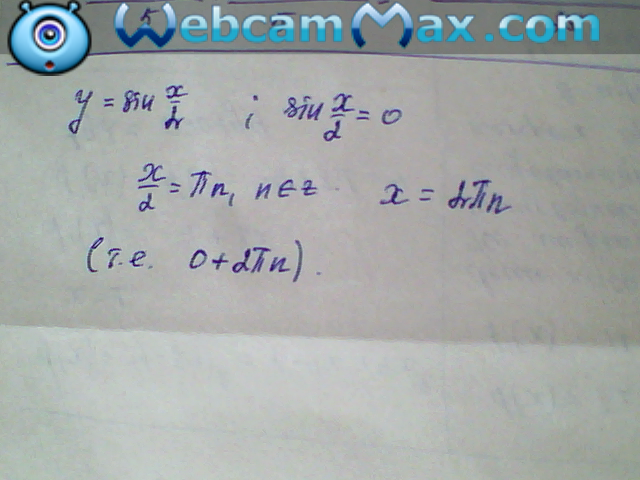 WebcamMax.com
y = sin x/2 ; sin x/2 = 0
x/2 = πn, n ∈ z. x = 2πn
(т.е. 0 + 2πn).